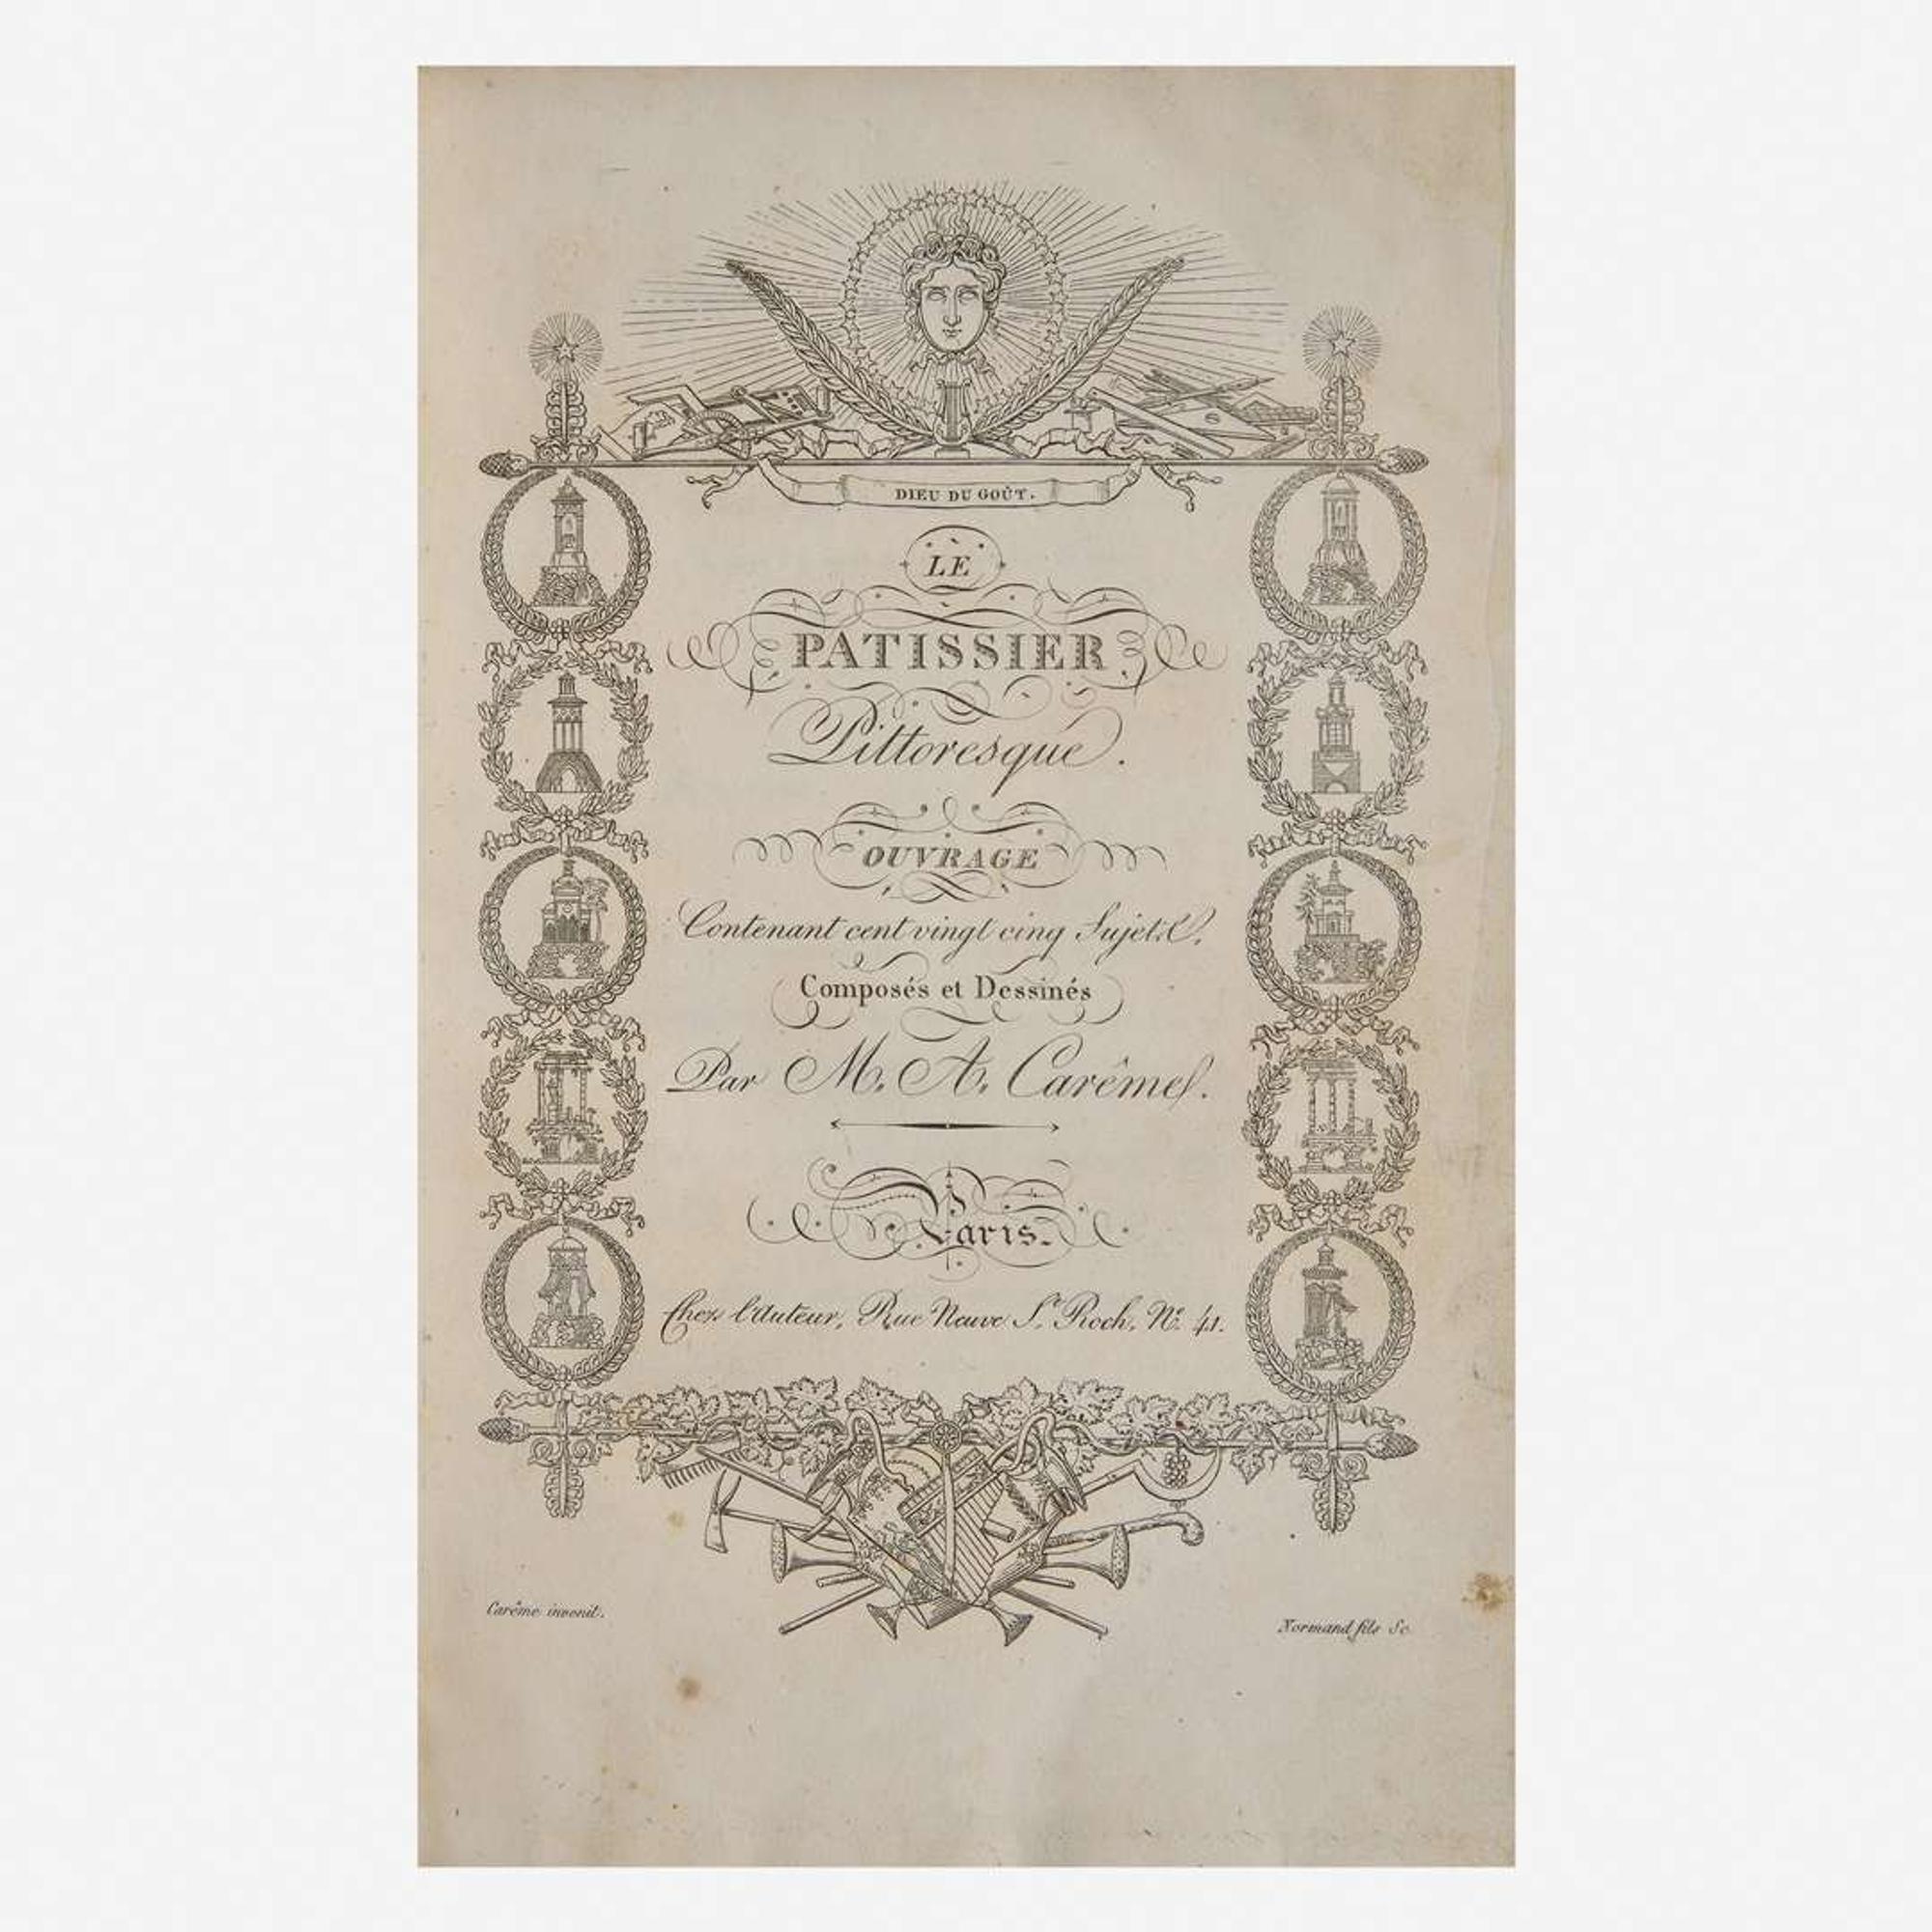 DIEU DU GOÛT.
LE
PATISSIER
Pittoresque.
OUVRAGE
Contenant cent vingt cinq Sujets,
Composés et Dessinés
Par M. A. Carême.
Paris.
Chez l'Auteur, Rue Neuve St. Roch, No. 41.
Carême invenit.
Normand fils Sc.